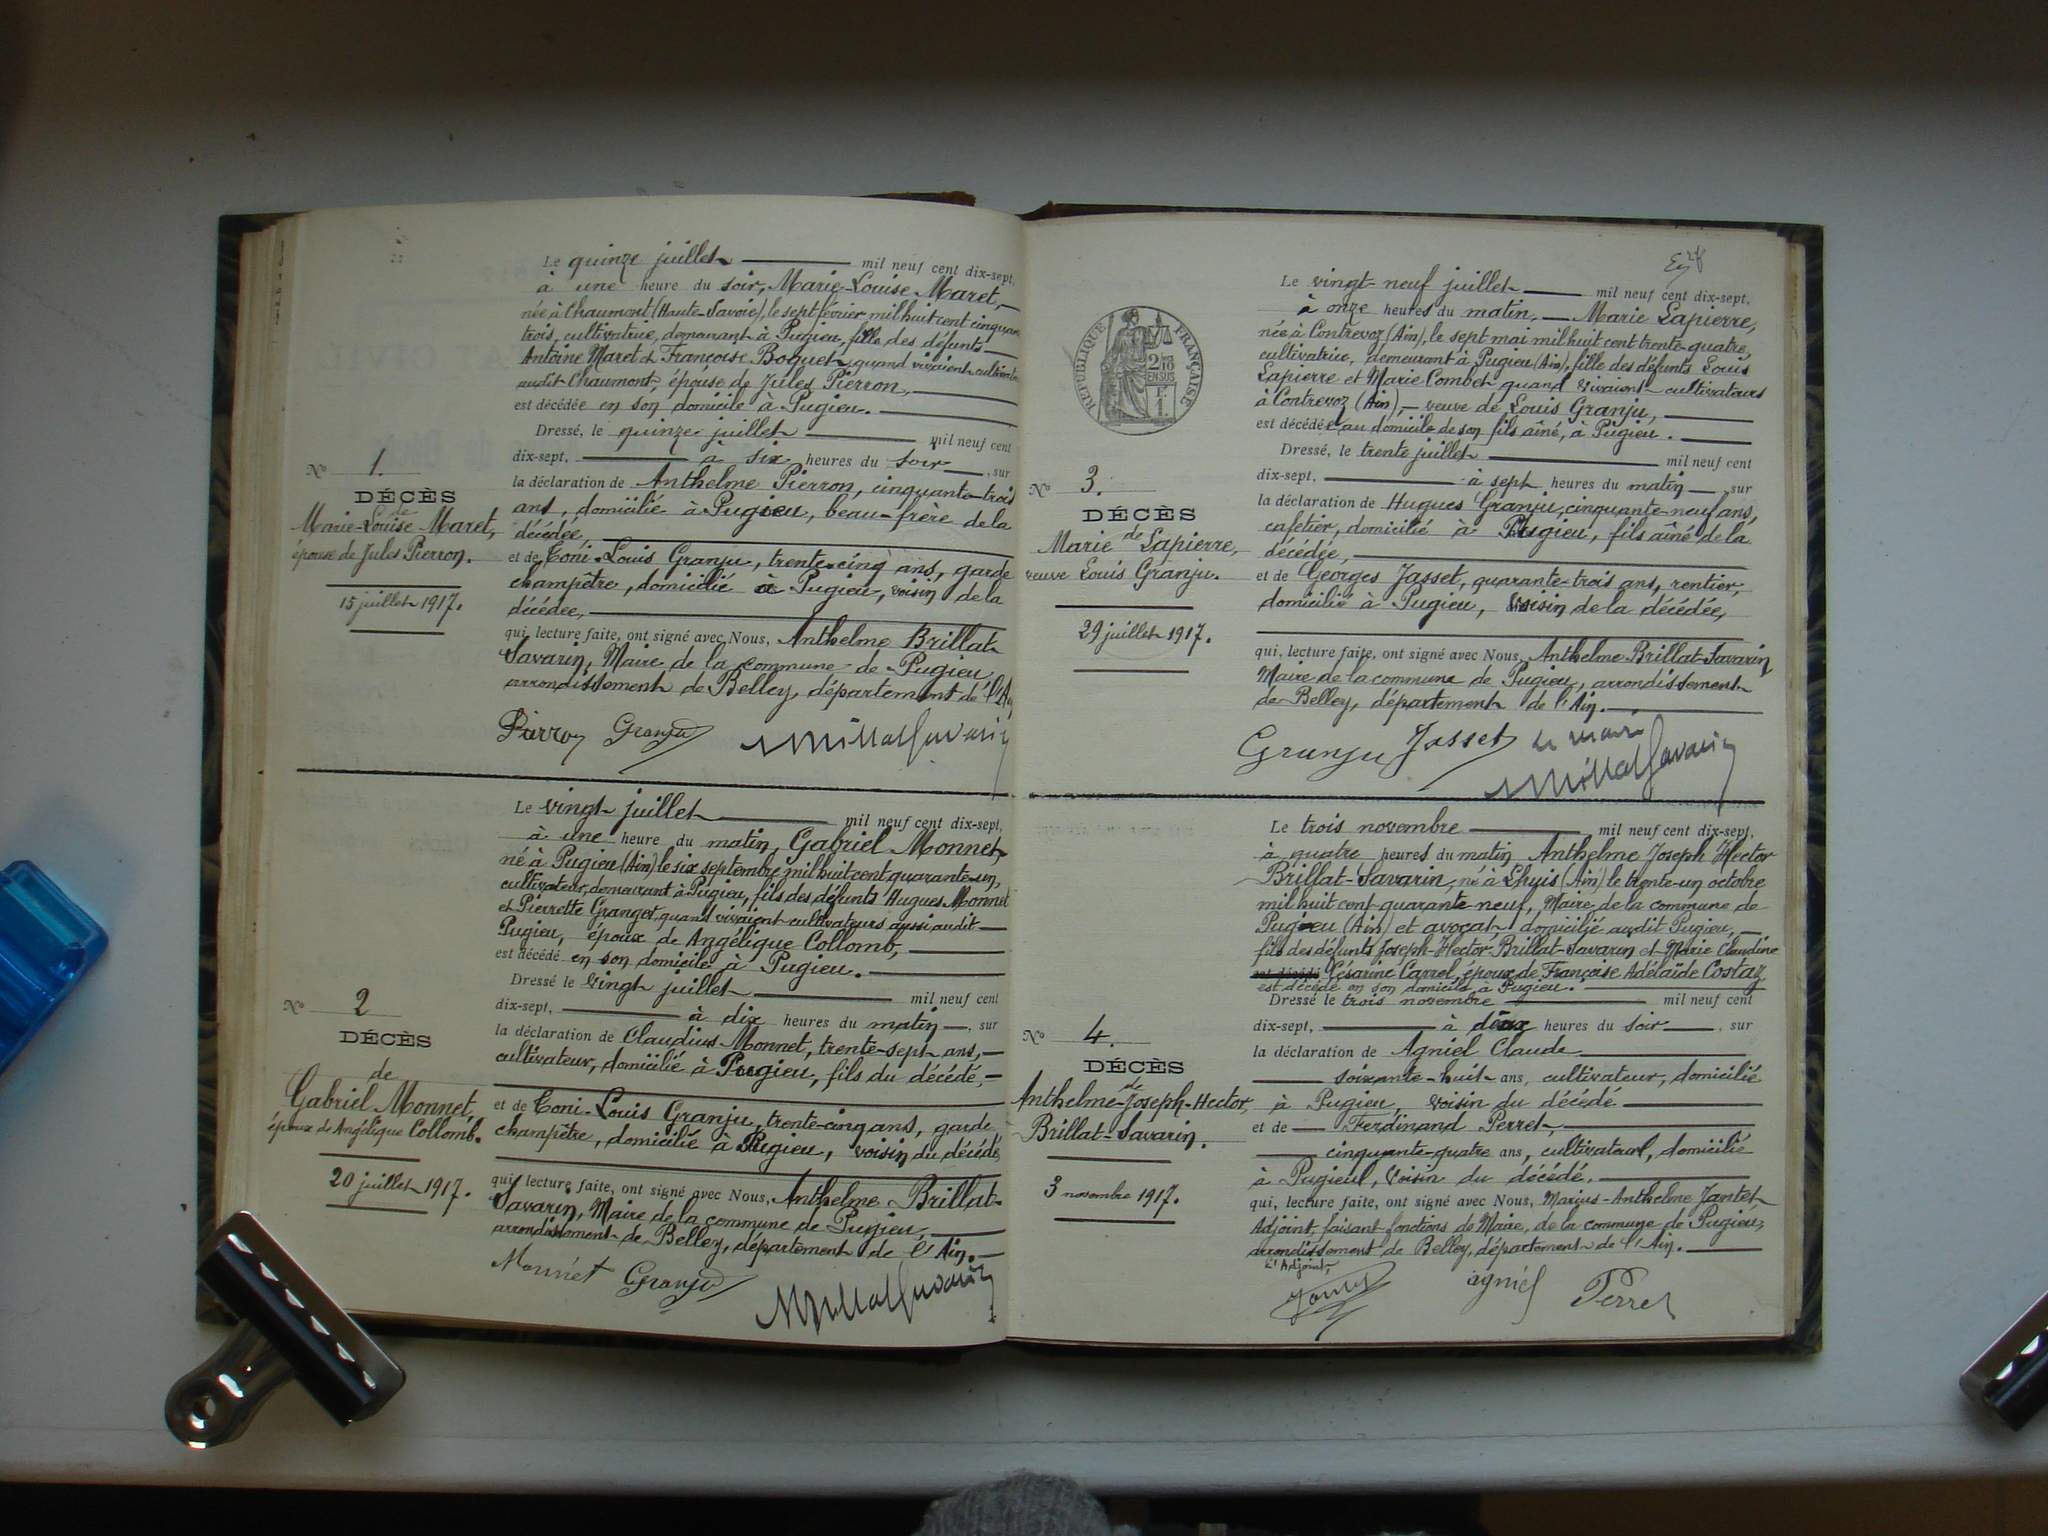 Le quinze juillet mil neuf cent dix-sept,
à une heure du soir, Marie-Louise Maret,
née à Chaumont (Haute-Savoie), le sept février mil huit cent cinquante
trois, cultivatrice, demeurant à Pugieu, fille des défunts
Antoine Maret et Françoise Boquet quand vivaient cultivateurs
audit Chaumont, épouse de Jules Pierron,
est décédée en son domicile à Pugieu.
Dressé, le quinze juillet mil neuf cent
dix-sept, à six heures du soir, sur
la déclaration de Anthelme Pierron, cinquante-trois
ans, domicilié à Pugieu, beau-frère de la
décédée,
et de Toni-Louis Granju, trente-cinq ans, garde
champêtre, domicilié à Pugieu, voisin de la
décédée,
qui, lecture faite, ont signé avec Nous, Anthelme Brillat-
Savarin, Maire de la commune de Pugieu
arrondissement de Belley, département de l'Ain
Pierron Granju Brillat Savarin
No 1.
DÉCÈS
de
Marie-Louise Maret,
épouse de Jules Pierron.
15 juillet 1917.
Le vingt juillet mil neuf cent dix-sept,
à une heure du matin, Gabriel Monnet,
né à Pugieu (Ain) le six septembre mil huit cent quarante-un,
cultivateur, demeurant à Pugieu, fils des défunts Hugues Monnet
et Pierrette Granger, quand vivaient cultivateurs aussi audit
Pugieu, époux de Angélique Collomb,
est décédé en son domicile à Pugieu.
Dressé le vingt juillet mil neuf cent
dix-sept, à dix heures du matin, sur
la déclaration de Claudius Monnet, trente-sept ans,
cultivateur, domicilié à Pugieu, fils du décédé,
et de Toni-Louis Granju, trente-cinq ans, garde
champêtre, domicilié à Pugieu, voisin du décédé
qui, lecture faite, ont signé avec Nous, Anthelme Brillat-
Savarin, Maire de la commune de Pugieu,
arrondissement de Belley, département de l'Ain.
Monnet Granju Brillat Savarin
No 2
DÉCÈS
de
Gabriel Monnet,
époux de Angélique Collomb.
20 juillet 1917.
RÉPUBLIQUE FRANÇAISE
2/10
EN SUS
1 F.
Le vingt-neuf juillet mil neuf cent dix-sept,
à onze heures du matin, Marie Lapierre,
née à Contrevoz (Ain), le sept mai mil huit cent trente-quatre,
cultivatrice, demeurant à Pugieu (Ain), fille des défunts Louis
Lapierre et Marie Combet quand vivaient cultivateurs
à Contrevoz (Ain), veuve de Louis Granju,
est décédée au domicile de son fils aîné, à Pugieu.
Dressé, le trente juillet mil neuf cent
dix-sept, à sept heures du matin, sur
la déclaration de Hugues Granju, cinquante-neuf ans,
cafetier, domicilié à Pugieu, fils aîné de la
décédée,
et de Georges Jasset, quarante-trois ans, rentier,
domicilié à Pugieu, voisin de la décédée,
qui, lecture faite, ont signé avec Nous, Anthelme Brillat-Savarin
Maire de la commune de Pugieu, arrondissement
de Belley, département de l'Ain.
Granju Jasset Le maire
Brillat Savarin
No 3.
DÉCÈS
de
Marie Lapierre,
veuve Louis Granju.
29 juillet 1917.
Le trois novembre mil neuf cent dix-sept,
à quatre heures du matin Anthelme Joseph Hector
Brillat-Savarin, né à Lhuis (Ain) le trente-un octobre
mil huit cent quarante-neuf, Maire de la commune de
Pugieu (Ain) et avocat, domicilié audit Pugieu,
fils des défunts Joseph-Hector Brillat-Savarin et Marie Claudine
est décédé Césarine Carrel, époux de Françoise Adélaïde Costaz
est décédé en son domicile à Pugieu.
Dressé le trois novembre mil neuf cent
dix-sept, à deux heures du soir, sur
la déclaration de Agniel Claude
soixante-huit ans, cultivateur, domicilié
à Pugieu, voisin du décédé
et de Ferdinand Perret,
cinquante-quatre ans, cultivateur, domicilié
à Pugieu, voisin du décédé.
qui, lecture faite, ont signé avec Nous, Marius-Anthelme Jantet
Adjoint, faisant fonctions de Maire, de la commune de Pugieu,
arrondissement de Belley, département de l'Ain.
L'Adjoint,
Jantet agniel Perret
No 4.
DÉCÈS
de
Anthelme-Joseph-Hector
Brillat-Savarin.
3 novembre 1917.